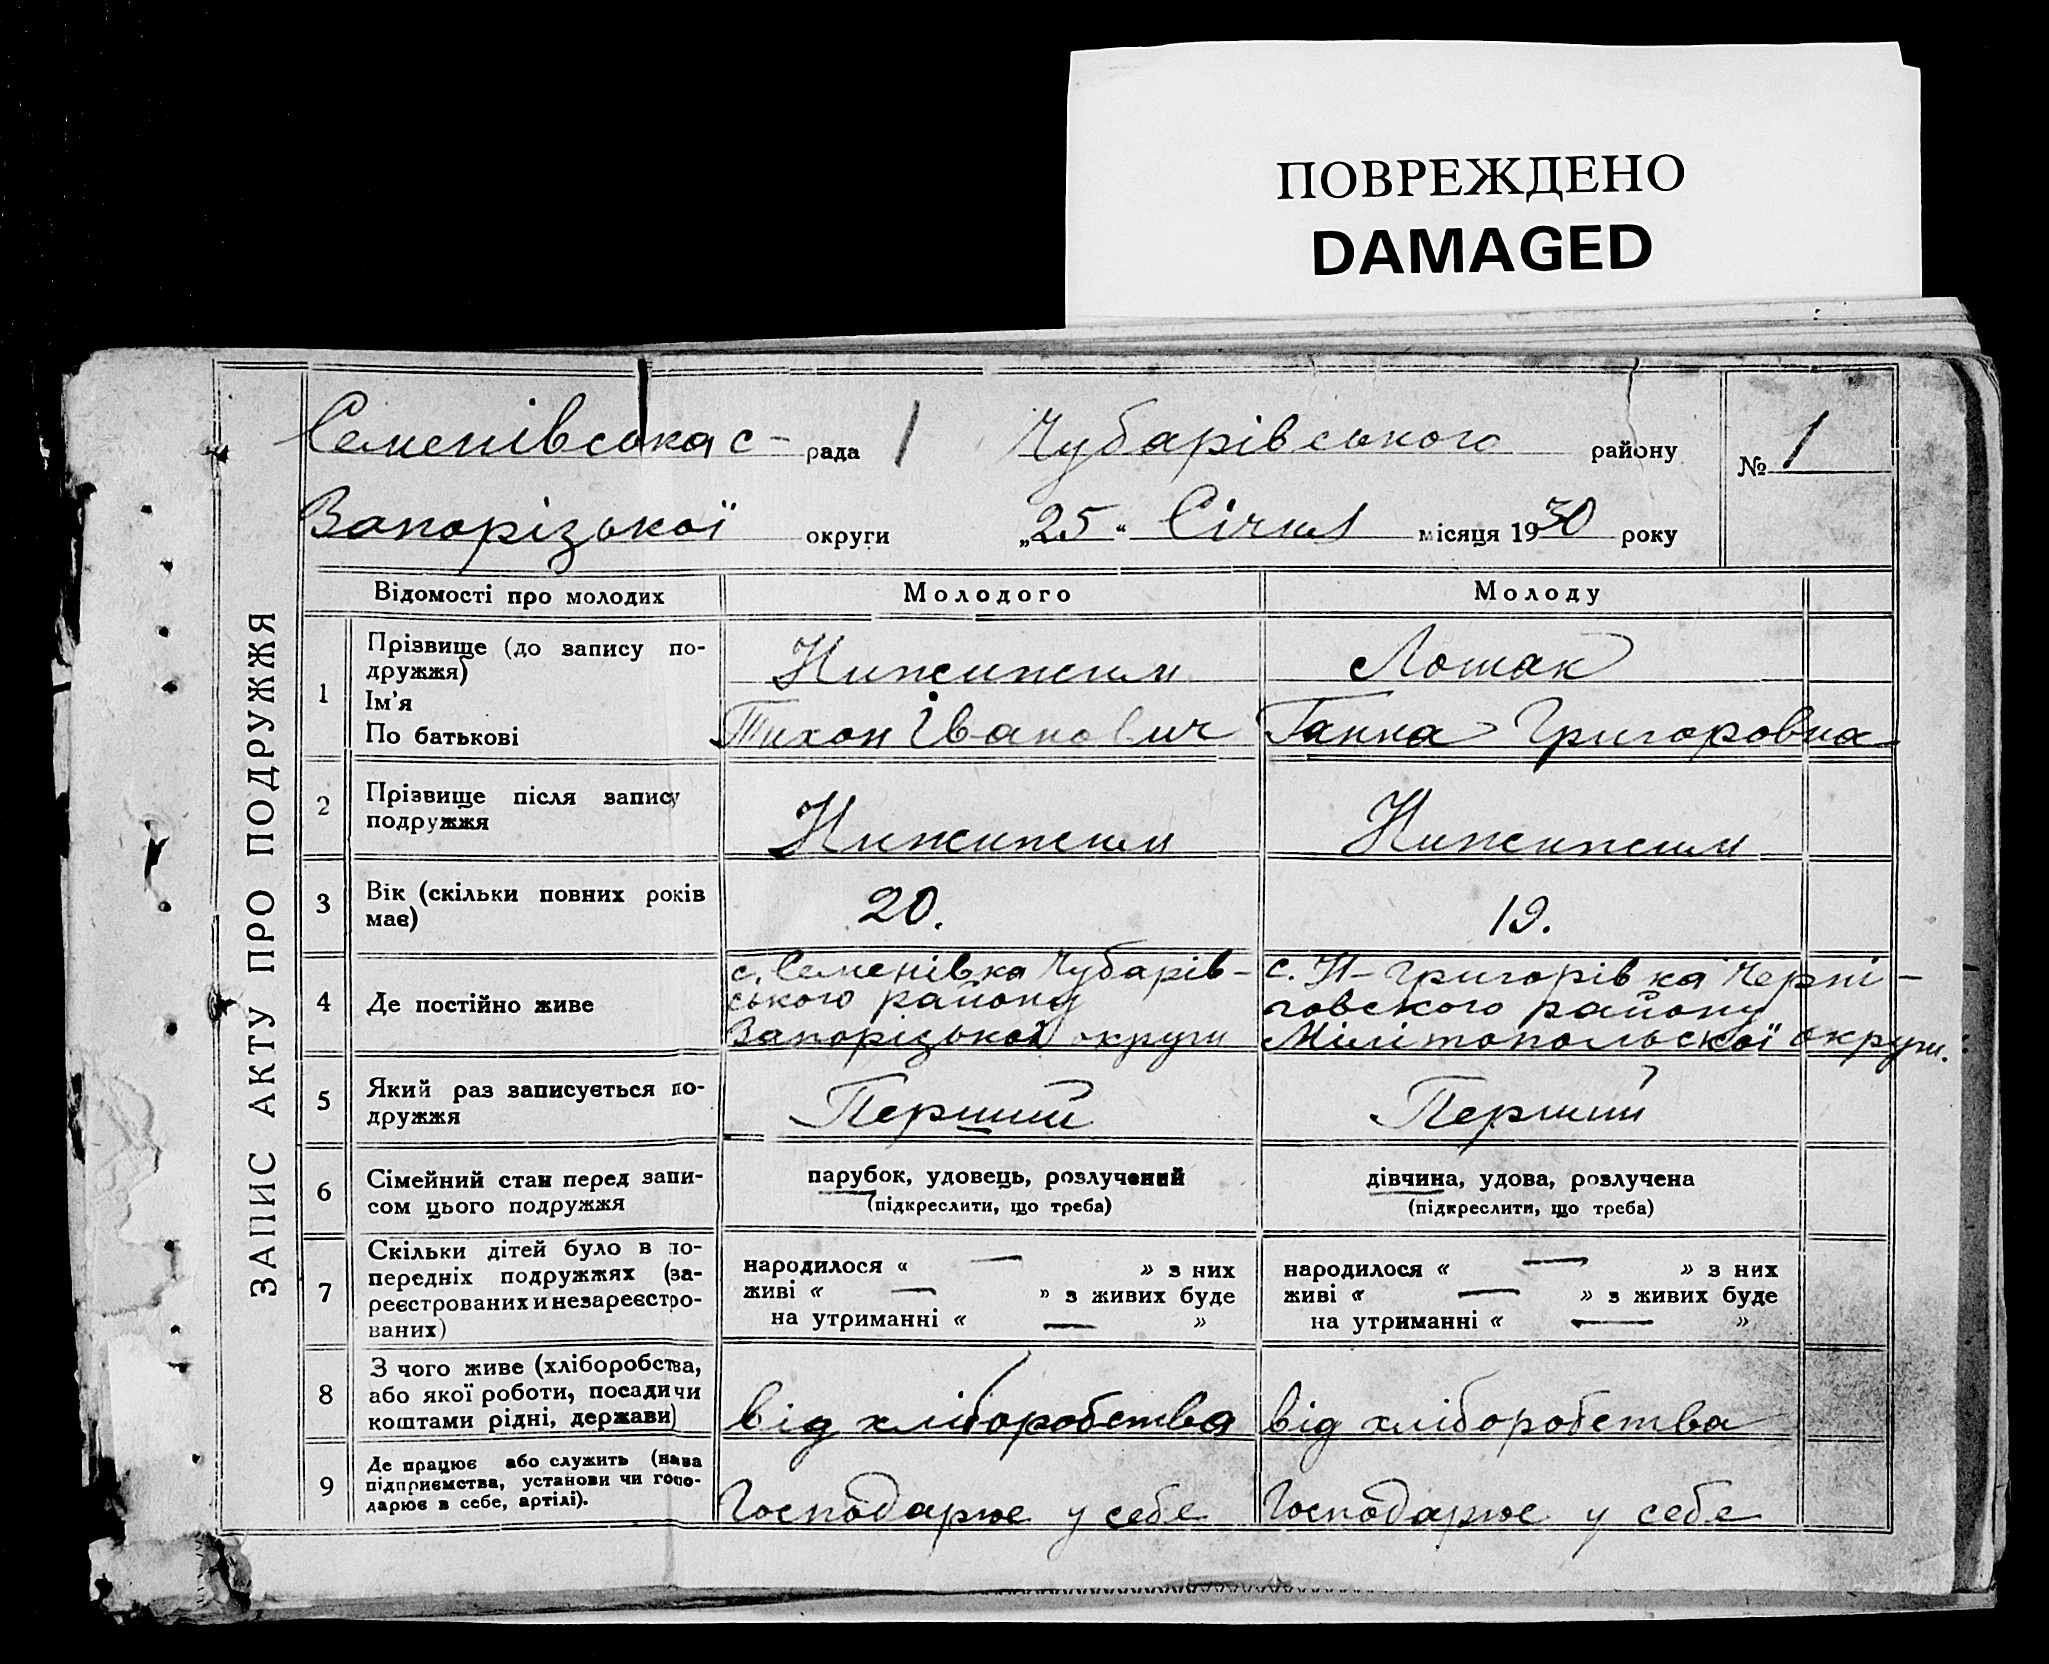 ПОВРЕЖДЕНО
DAMAGED
ЗАПИС АКТУ ПРО ПОДРУЖЖЯ
Семенівська с- рада 1 Чубарівського району № 1
Запорізької округи „25“ Січня місяця 1930 року
Відомості про молодих Молодого Молоду
1 Прізвище (до запису по-
дружжя) Лошак
Ім'я
По батькові Тихон Іванович Ганна Григоровна
2 Прізвище після запису
подружжя
3 Вік (скільки повних років
має) 20. 19.
с. Семенівка Чубарів- с. Н-Григорівка Черні-
4 Де постійно живе ського району говского району
Запорізької округи Мілітопольскої округи.
5 Який раз записується по-
дружжя Перший Перший
6 Сімейний стан перед запи-
сом цього подружжя
парубок, удовець, розлучений дівчина, удова, розлучена
(підкреслити, що треба) (підкреслити, що треба)
7 Скільки дітей було в по-
передніх подружжях (за-
реєстрованих и незареєстро-
ваних)
народилося « — » з них народилося « — » з них
живі « — » з живих буде живі « — » з живих буде
на утриманні « — » на утриманні « — »
8 З чого живе (хліборобства,
або якої роботи, посади чи
коштами рідні, держави) від хліборобства від хліборобства
9 Де працює або служить (нава
підприємства, установи чи госпо-
дарює в себе, артілі). Господарює у себе Господарює у себе